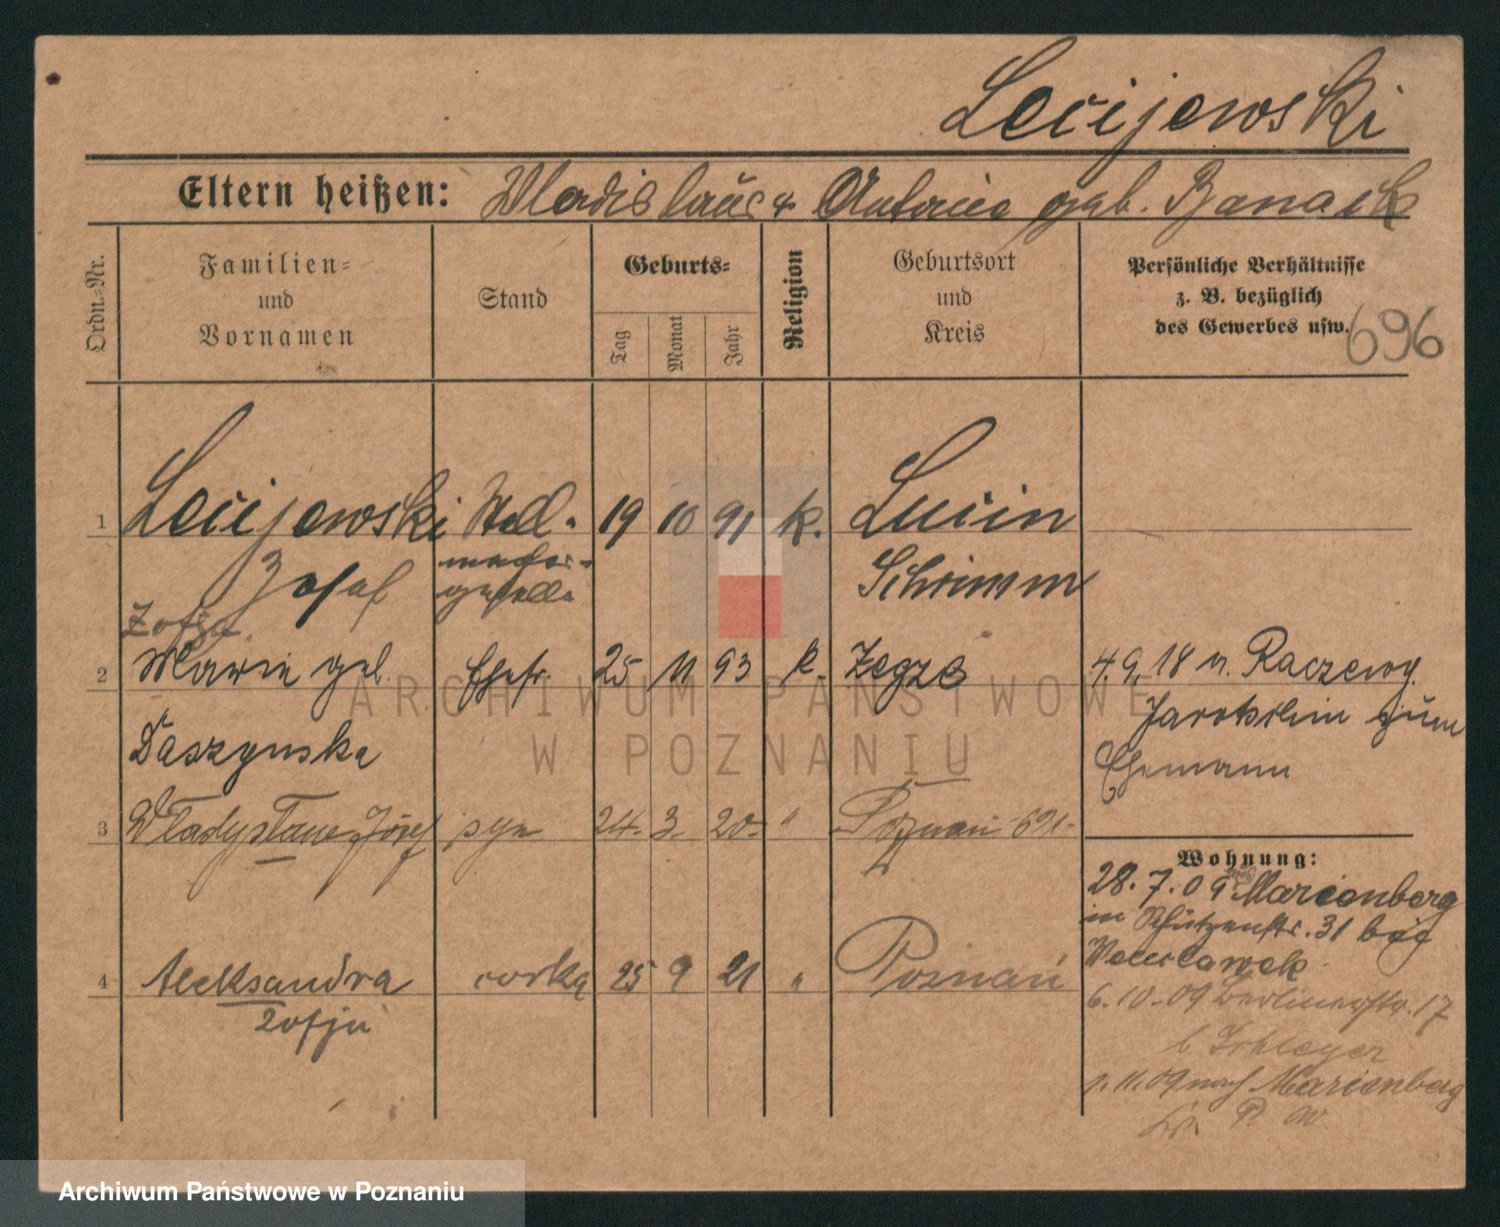 Lecijewski
Eltern heißen: Wladislaus & Antonie geb. Banaik
Ordn.-Nr.
Familien-
und
Vornamen
Stand
Geburts-
Tag
Monat
Jahr
Religion
Geburtsort
und
Kreis
Persönliche Verhältnisse
z. B. bezüglich
des Gewerbes usw.
696
1 Lecijewski Stell- 19 10 91 k. Lucin
Josef macher- geselle Schrimm
Zofja
2 Marie geb. Ehefr. 25 11 93 k. Zegże 4.9.18 n. Raczewy.
Daszynska Jarotschin zum
Ehemann
3 Władysław Józef syn 24. 3. 20. " Poznań 691-
Wohnung:
28. 7. 09 Marienberg
in Schützenstr. 31 bei
6.10.09 Berlinerstr. 17
4 Aleksandra córka 25 9 21 " Poznań
Zofja
b
1.11.09 nach Marienberg
Kr. P. W
ARCHIWUM PAŃSTWOWE
W POZNANIU
Archiwum Państwowe w Poznaniu